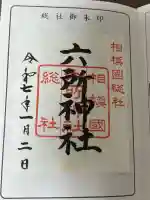 総社御朱印
相模國総社
六所神社
相模國
総社
令和七年一月二日